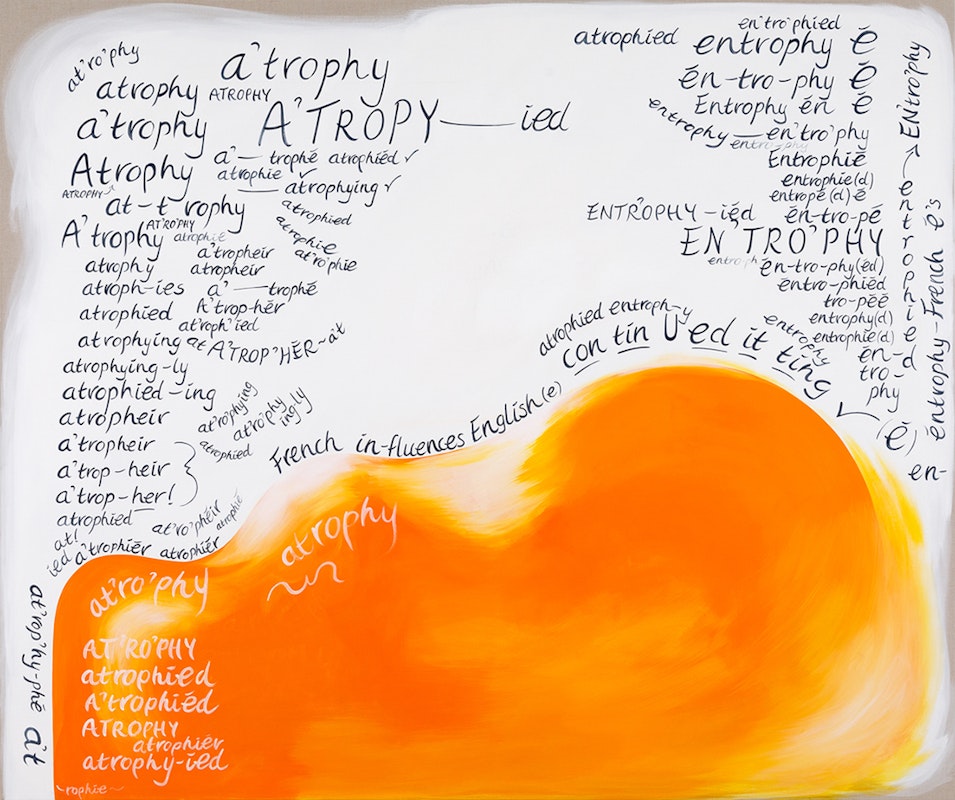 at'ro'phy
atrophy
a'trophy
ATROPHY
a'trophy
A'TROPY——ied
Atrophy
a'—trophē atrophiēd ✓
atrophie ✓
ATROPHY
—atrophying ✓
at-t'rophy
atrophied
AT'RO'PHY
A'trophy
atrophie
atrophiē
at'rō'phie
a'tropheir
atrophy
atropheir
atroph-ies
a'—trophē
atrophied
A'trop-hēr
atroph'ied
atrophying
at A'TROP'HĒR-ait
atrophying-ly
atrophied-ing
atropheir
at'rophying
at'ro'phy
ingly
atrophied
a'tropheir
a'trop-heir
a'trop-her!
atrophied
at'ro'phēir
atrophiē
at!
ied
a'trophiēr
atrophiēr
at'rop'hy-phē
a't
atrophied
en'tro'phied
entrophy ē
ēn-tro-phy ē
Entrophy ēn ē
entrophy—en'tro'phy
entrophy
Entrophiē
entrophie(d)
entropē(d)ē
ENTRO'PHY-iēd
ēn-tro-pē
EN'TRO'PHY
entro-ph
ēn-tro-phy(ēd)
entro-phiēd
tro-pēē
entrophy(d)
entrophie(d)
entrophy
ēn-
tro-
phy
→ ENtro'phy
entrophied
entrophy-French ē's
(ē)
en-
atrophied entroph-y
con tin U ed it ting
French in-fluences English(e)
at'ro'phy
atrophy
AT'RO'PHY
atrophiēd
A'trophiēd
ATROPHY
atrophiēr
atrophy-iēd
~rophie~